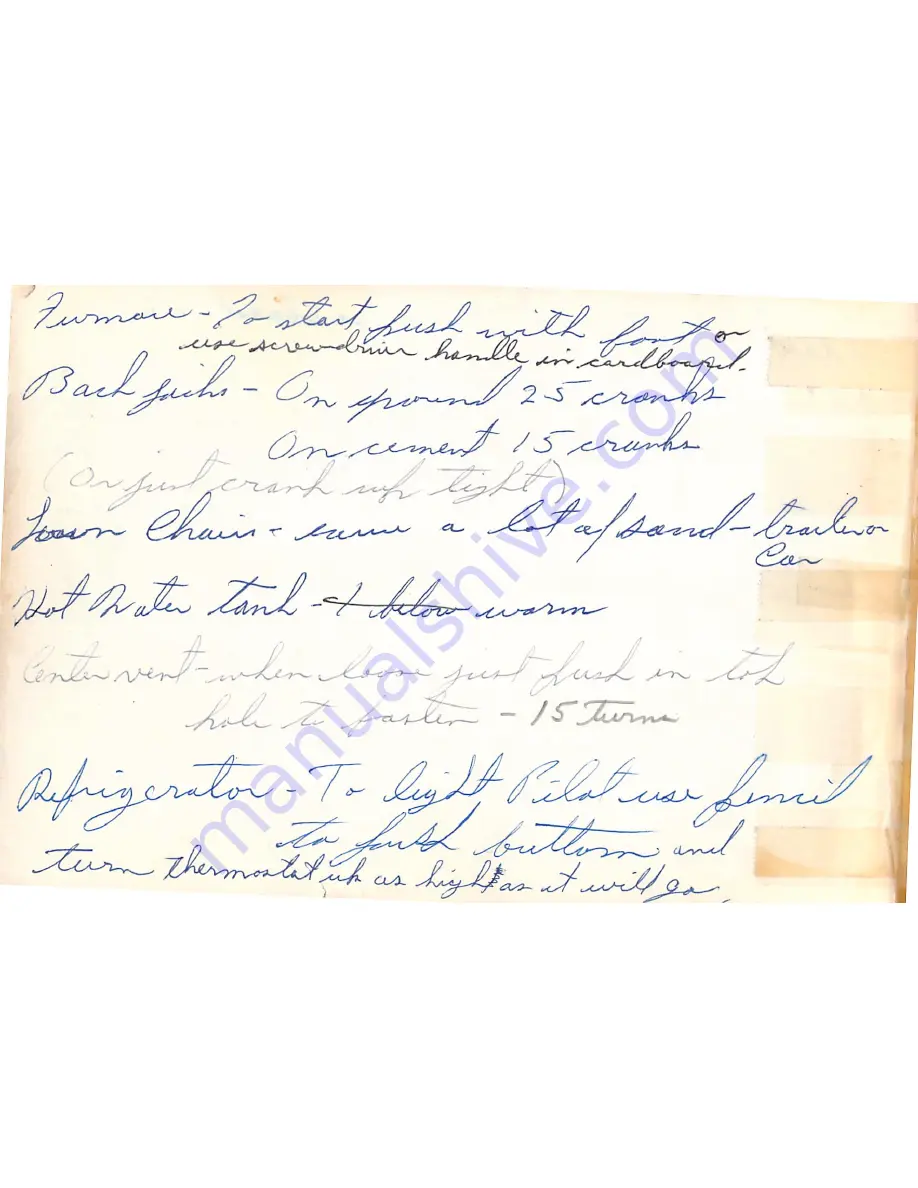 Furnace - To start push with foot or
use screwdriver handle in cardboard.
Back jacks - On ground 25 cranks
On cement 15 cranks
(Or just crank up tight)
Lawn Chair - a lot of sand - trailer or
Car
Hot Water tank - warm
Center vent - when loose just push in
hole to fasten - 15 turns
Refrigerator - To light Pilot use pencil
to push button and
turn thermostat up as high as it will go.
manualshive.com